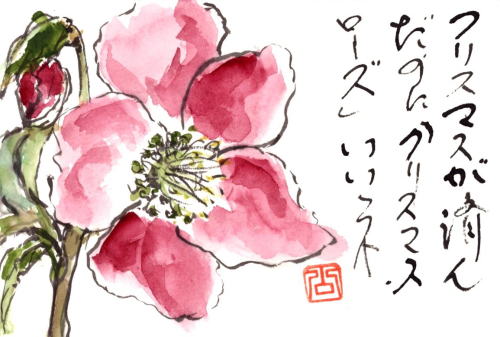 クリスマスが済ん
だのにクリスマス
ローズ」いい